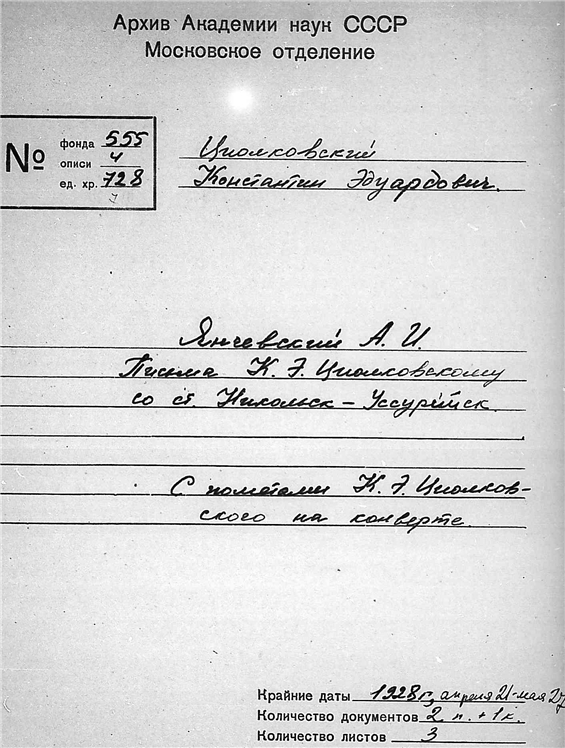 Архив Академии наук СССР
Московское отделение
№
фонда 555
описи 4
ед. хр. 728
Циолковский
Константин Эдуардович.
Янчевский А. И.
Письма К. Э. Циолковскому
со ст. Никольск-Уссурийск.
С пометами К. Э. Циолков-
ского на конверте
Крайние даты 1928 г, апреля 21-мая 27
Количество документов 2 п. + 1 к.
Количество листов 3